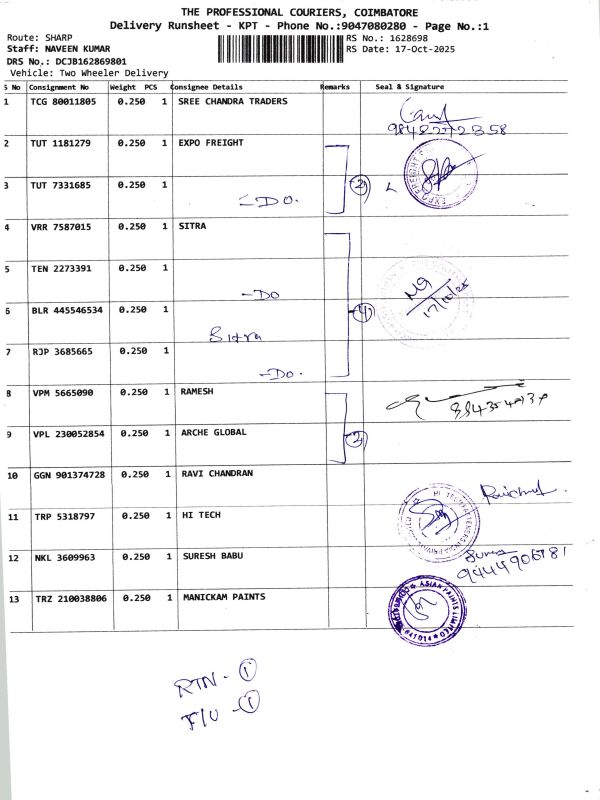 THE PROFESSIONAL COURIERS, COIMBATORE
Delivery Runsheet - KPT - Phone No.:9047080280 - Page No.:1
Route: SHARP
RS No.: 1628698
Staff: NAVEEN KUMAR
RS Date: 17-Oct-2025
DRS No.: DCJB162869801
Vehicle: Two Wheeler Delivery
S No Consignment No Weight PCS Consignee Details Remarks Seal & Signature
1 TCG 80011805 0.250 1 SREE CHANDRA TRADERS
2 TUT 1181279 0.250 1 EXPO FREIGHT
3 TUT 7331685 0.250 1
-DO. 2
4 VRR 7587015 0.250 1 SITRA
5 TEN 2273391 0.250 1
-DO
17/10/25
6 BLR 445546534 0.250 1 4
Sitra
7 RJP 3685665 0.250 1
-DO.
8 VPM 5665090 0.250 1 RAMESH
9 VPL 230052854 0.250 1 ARCHE GLOBAL 2
10 GGN 901374728 0.250 1 RAVI CHANDRAN
11 TRP 5318797 0.250 1 HI TECH
12 NKL 3609963 0.250 1 SURESH BABU
13 TRZ 210038806 0.250 1 MANICKAM PAINTS
ASIAN PAINTS LIMITED
641014
RTN - 1
F/U - 1